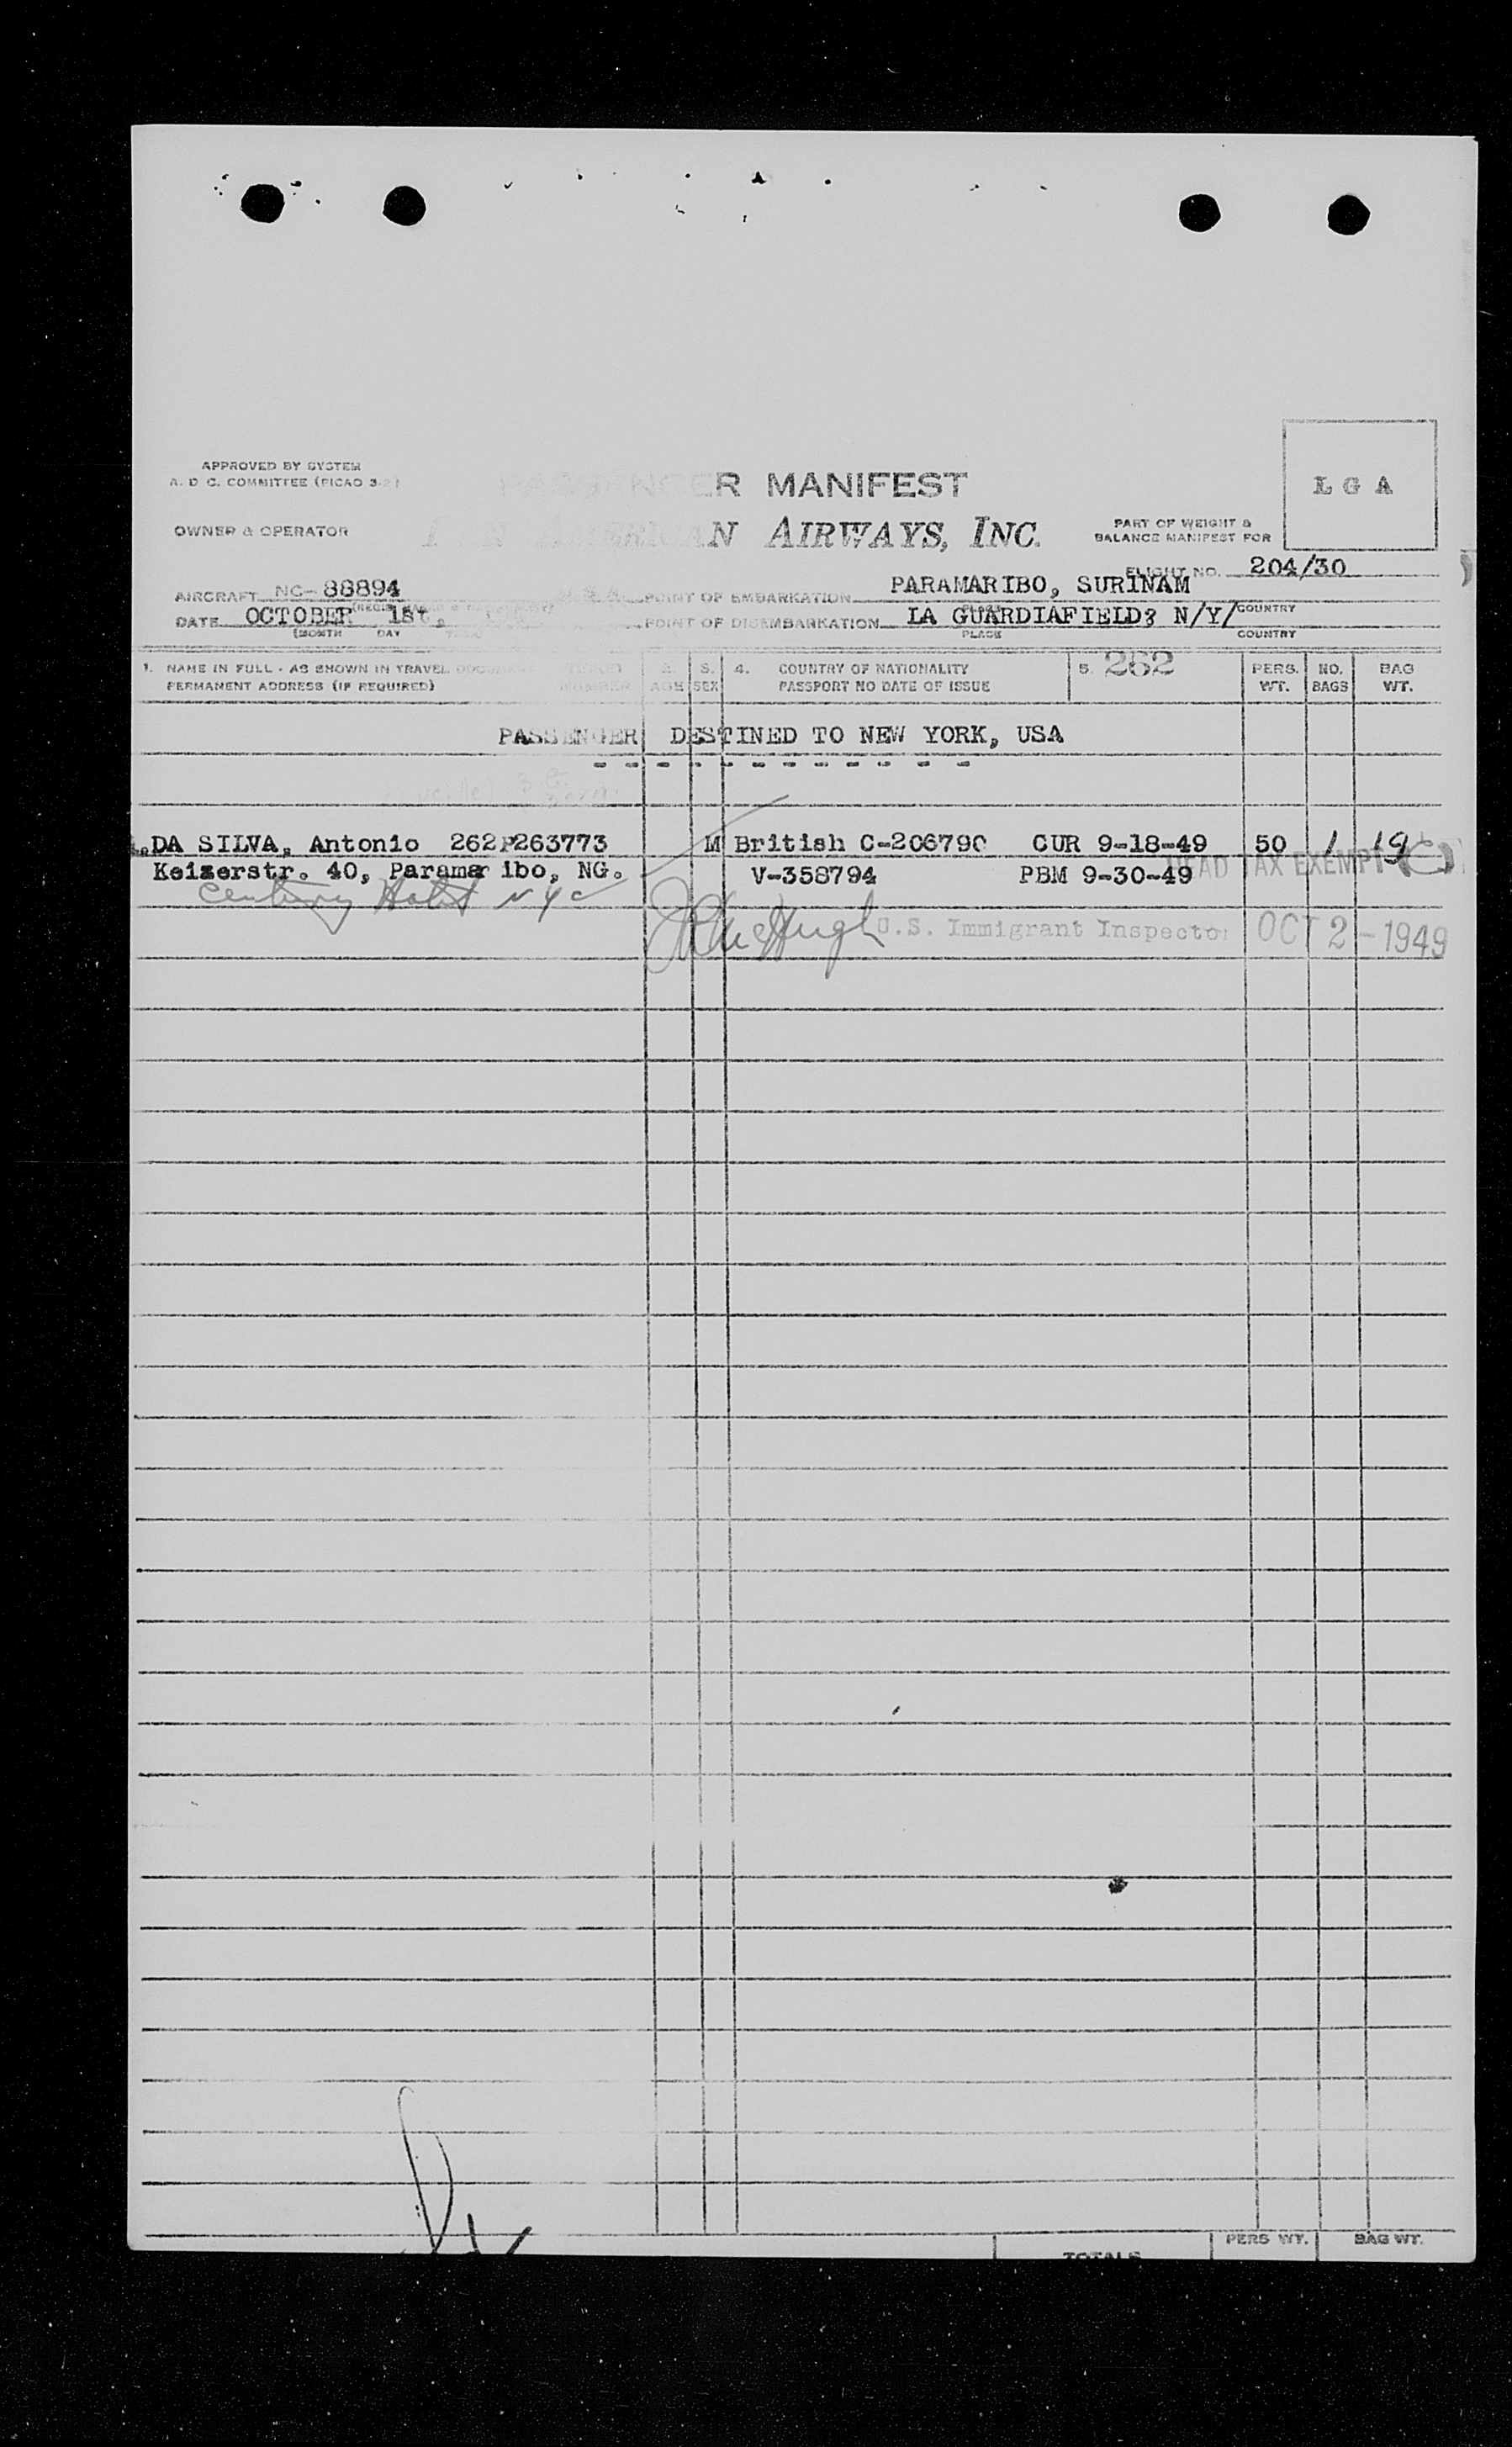 APPROVED BY SYSTEM
A. D. C. COMMITTEE (PICAO 3-2)
PASSENGER MANIFEST
L G A
OWNER & OPERATOR
AN AIRWAYS, INC.
PART OF WEIGHT &
BALANCE MANIFEST FOR
FLIGHT NO. 204/30
AIRCRAFT NC-88894
POINT OF EMBARKATION PARAMARIBO, SURINAM
DATE OCTOBER 1st,
POINT OF DISEMBARKATION LA GUARDIAFIELD? N/Y/
PLACE COUNTRY
(MONTH DAY
PLACE COUNTRY
1. NAME IN FULL - AS SHOWN IN TRAVEL
PERMANENT ADDRESS (IF REQUIRED)
NUMBER
2. AGE
3. SEX
4. COUNTRY OF NATIONALITY
PASSPORT NO DATE OF ISSUE
5. 262
PERS. WT.
NO. BAGS
BAG WT.
PASSENGER DESTINED TO NEW YORK, USA
- - - - - - - - - - - -
1.DA SILVA, Antonio 262P263773 M British C-206790 CUR 9-18-49 50 1 19
Keizerstr. 40, Paramaribo, NG. V-358794 PBM 9-30-49
HEAD TAX EXEMPT
Century Hotel NYC
U.S. Immigrant Inspector OCT 2 - 1949
PERS WT. BAG WT.
TOTALS